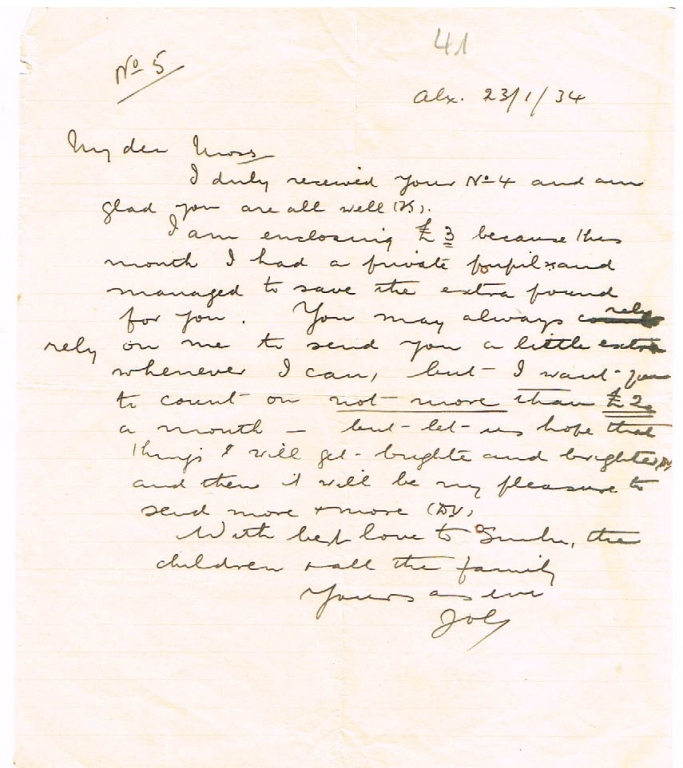 41
No 5
Alx. 23/1/34
My dear Moss
I duly received your No 4 and am
glad you are all well (DV).
I am enclosing £3 because this
month I had a private pupil and
managed to save the extra pound
for you. You may always rely
rely on me to send you a little extra
whenever I can, but I want you
to count on not more than £2
a month – but let us hope that
things will get brighter and brighter, DV
and then it will be my pleasure to
send more + more (DV)
With best love to the
children + all the family
Yours as ever